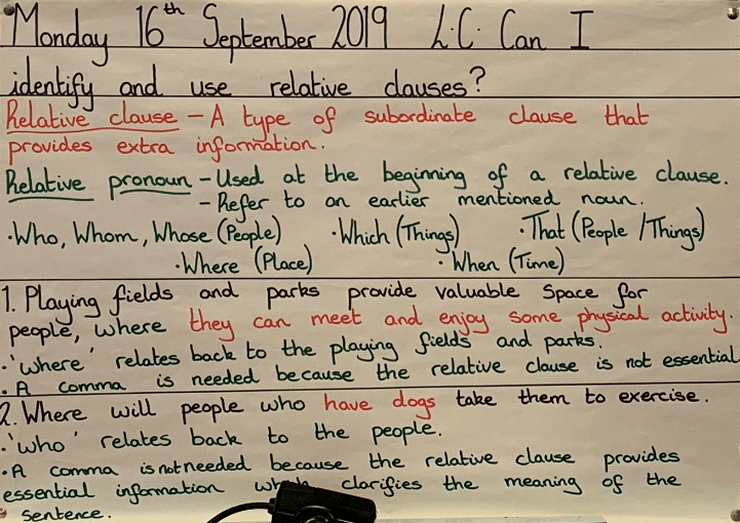 Monday 16th September 2019 L.C. Can I
identify and use relative clauses?
Relative clause - A type of subordinate clause that
provides extra information.
Relative pronoun - Used at the beginning of a relative clause.
- Refer to an earlier mentioned noun.
·Who, Whom, Whose (People) ·Which (Things) ·That (People / Things)
·Where (Place) ·When (Time)
1. Playing fields and parks provide valuable space for
people, where they can meet and enjoy some physical activity.
·'where' relates back to the playing fields and parks.
·A comma is needed because the relative clause is not essential
2. Where will people who have dogs take them to exercise.
·'who' relates back to the people.
·A comma is not needed because the relative clause provides
essential information which clarifies the meaning of the
sentence.